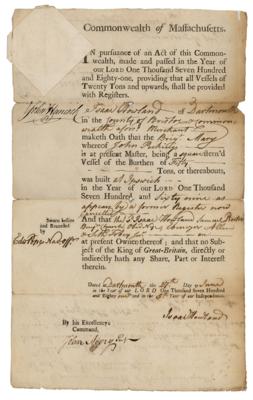 Commonwealth of Massachusetts.
IN pursuance of an Act of this Common-
wealth, made and passed in the Year of
our LORD One Thousand Seven Hundred
and Eighty-one, providing that all Vessels of
Twenty Tons and upwards, shall be provided
with Registers.
John Hancock
Isaac Howland of Dartmouth
in the County of Bristol & common-
wealth afores Merchant
maketh Oath that the Brig Mary
whereof John
is at present Master, being a
Vessel of the Burthen of Fifty
Tons, or thereabouts,
was built at Ipswich
in the Year of our LORD One Thousand
Seven Hundred and Sixty nine as
appears by a former Register now
Cancelled
Sworn before
and Recorded
by
Edw Pope Nav. offr
And that the Isaac Howland Samuel
at present Owners thereof; and that no Sub-
ject of the King of Great-Britain, directly or
indirectly hath any Share, Part or Interest
therein.
Dated Dartmouth the Day of June
in the Year of our LORD One Thousand Seven Hundred
and Eighty and in the Year of our Independence.
Isaac Howland
By his Excellency's
Command,
John Avery